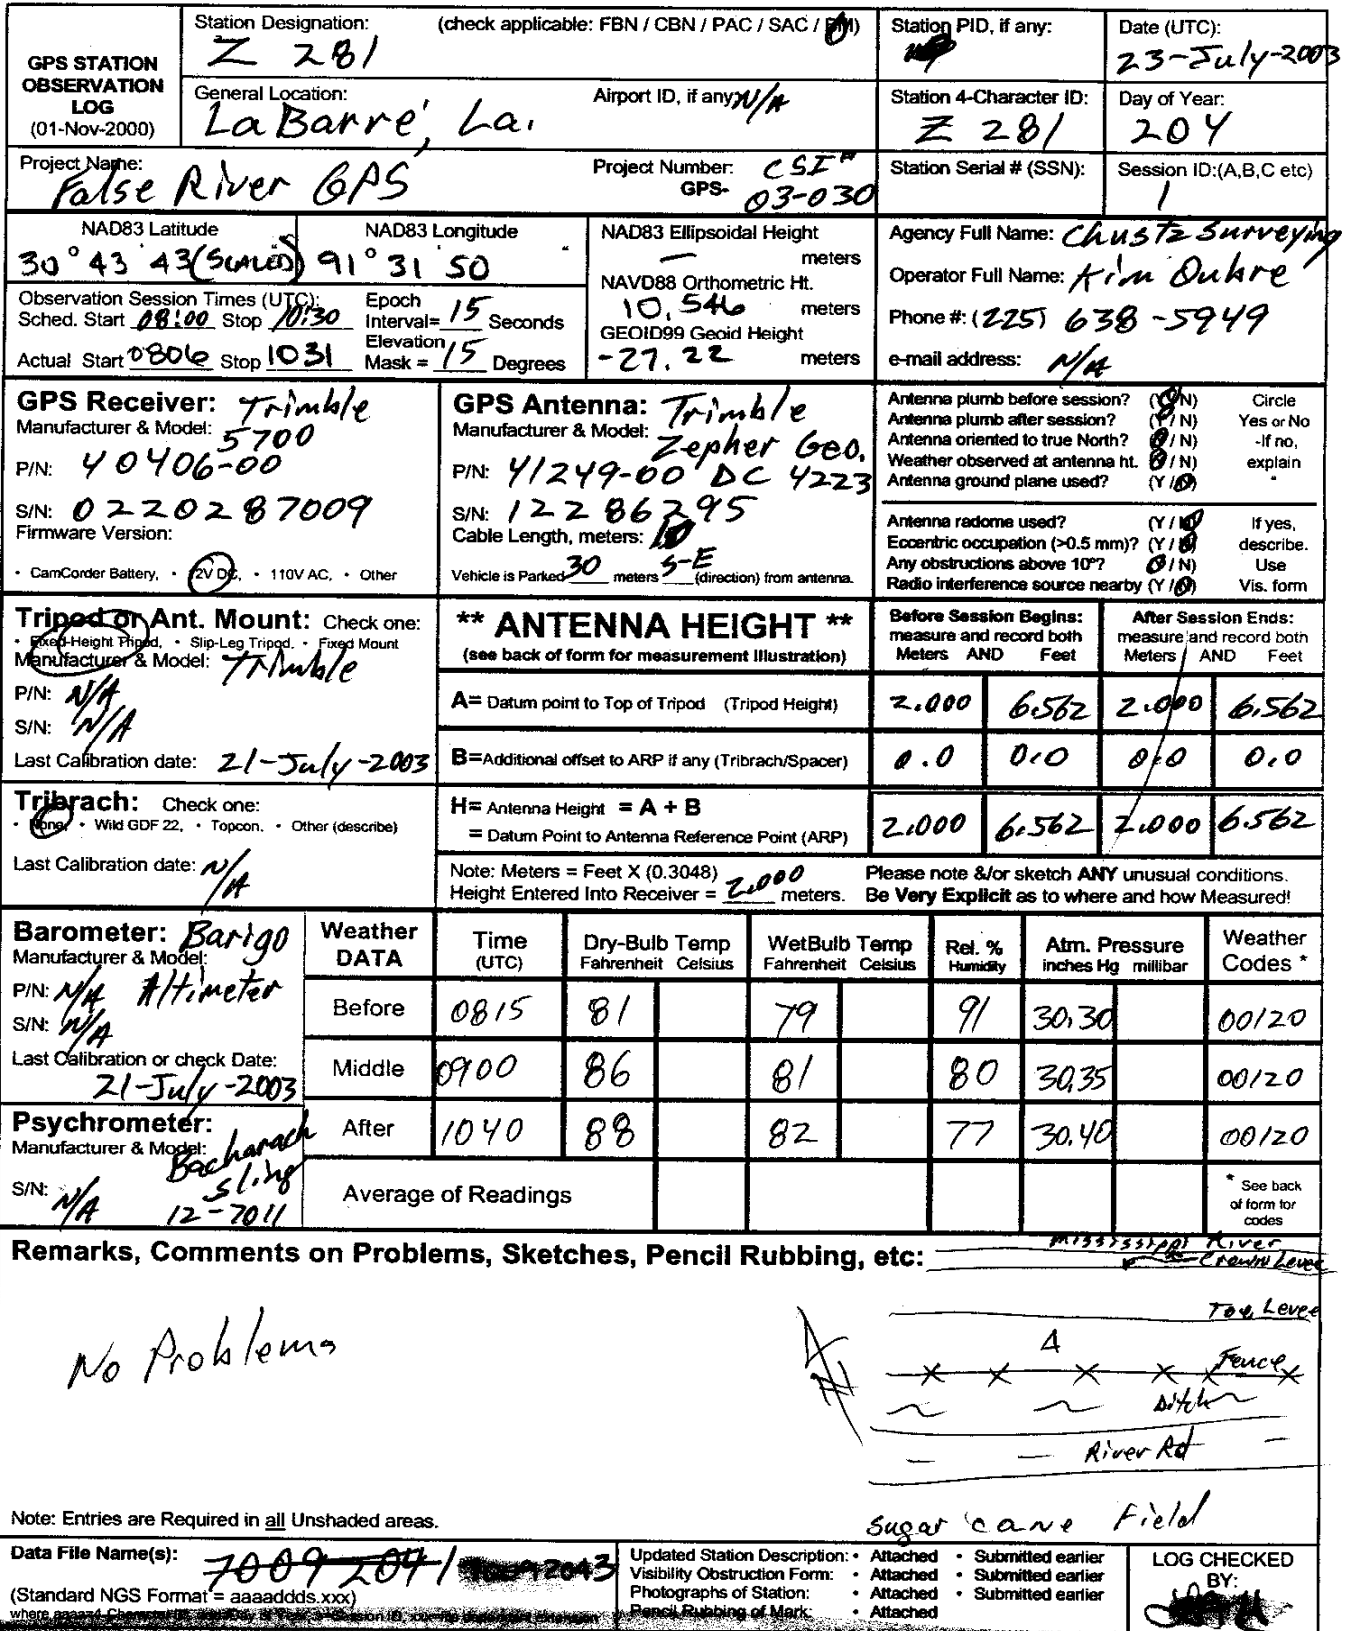 GPS STATION OBSERVATION LOG (01-Nov-2000)
Station Designation: (check applicable: FBN / CBN / PAC / SAC / BM)
Z 281
Station PID, if any:
Date (UTC):
23-July-2003
General Location:
La Barre, La.
Airport ID, if any: N/A
Station 4-Character ID:
Z 281
Day of Year:
204
Project Name:
False River GPS
Project Number: CSI#
GPS- 03-030
Station Serial # (SSN):
Session ID:(A,B,C etc)
1
NAD83 Latitude
30° 43' 43 (SCALED)
NAD83 Longitude
91° 31 50
NAD83 Ellipsoidal Height
— meters
NAVD88 Orthometric Ht.
10.546 meters
GEOID99 Geoid Height
-27.22 meters
Agency Full Name: Chustz Surveying
Operator Full Name: Kim Duhre
Phone #: (225) 638-5949
e-mail address: N/A
Observation Session Times (UTC):
Sched. Start 08:00 Stop 10:30
Actual Start 0806 Stop 1031
Epoch
Interval= 15 Seconds
Elevation
Mask = 15 Degrees
GPS Receiver: Trimble
Manufacturer & Model: 5700
P/N: 40406-00
S/N: 0220287009
Firmware Version:
• CamCorder Battery, • 12V DC, • 110V AC, • Other
GPS Antenna: Trimble
Manufacturer & Model: Zepher Geo.
P/N: 41249-00 DC 4223
S/N: 12286295
Cable Length, meters: 10
Vehicle is Parked 30 meters S-E (direction) from antenna.
Antenna plumb before session? (Y/N) Circle
Antenna plumb after session? (Y/N) Yes or No
Antenna oriented to true North? (Y/N) -If no,
Weather observed at antenna ht. (Y/N) explain
Antenna ground plane used? (Y/N) "
Antenna radome used? (Y/N) If yes,
Eccentric occupation (>0.5 mm)? (Y/N) describe.
Any obstructions above 10°? (Y/N) Use
Radio interference source nearby (Y/N) Vis. form
Tripod or Ant. Mount: Check one:
• Fixed-Height Tripod, • Slip-Leg Tripod, • Fixed Mount
Manufacturer & Model: Trimble
P/N: N/A
S/N: N/A
Last Calibration date: 21-July-2003
** ANTENNA HEIGHT **
(see back of form for measurement Illustration)
Before Session Begins:
measure and record both
Meters AND Feet
After Session Ends:
measure and record both
Meters AND Feet
A= Datum point to Top of Tripod (Tripod Height) 2.000 6.562 2.000 6.562
B=Additional offset to ARP if any (Tribrach/Spacer) 0.0 0.0 0.0 0.0
Tribrach: Check one:
• None, • Wild GDF 22, • Topcon, • Other (describe)
Last Calibration date: N/A
H= Antenna Height = A + B
= Datum Point to Antenna Reference Point (ARP) 2.000 6.562 2.000 6.562
Note: Meters = Feet X (0.3048)
Height Entered Into Receiver = 2.000 meters.
Please note &/or sketch ANY unusual conditions.
Be Very Explicit as to where and how Measured!
Barometer: Barigo
Manufacturer & Model:
P/N: N/A Altimeter
S/N: N/A
Last Calibration or check Date:
21-July-2003
Psychrometer:
Manufacturer & Model: Bacharach
Sling
S/N: N/A 12-7011
Weather DATA Time (UTC) Dry-Bulb Temp Fahrenheit Celsius WetBulb Temp Fahrenheit Celsius Rel. % Humidity Atm. Pressure inches Hg millibar Weather Codes *
Before 0815 81 79 91 30.30 00120
Middle 0900 86 81 80 30.35 00120
After 1040 88 82 77 30.40 00120
Average of Readings
* See back of form for codes
Remarks, Comments on Problems, Sketches, Pencil Rubbing, etc:
Mississippi River
Crown Levee
Toe Levee
No Problems
Fence
Ditch
River Rd
Sugar Cane Field
Note: Entries are Required in all Unshaded areas.
Data File Name(s): 70092041 70092043
(Standard NGS Format = aaaaddds.xxx)
Updated Station Description: • Attached • Submitted earlier
Visibility Obstruction Form: • Attached • Submitted earlier
Photographs of Station: • Attached • Submitted earlier
Pencil Rubbing of Mark: • Attached
LOG CHECKED
BY: